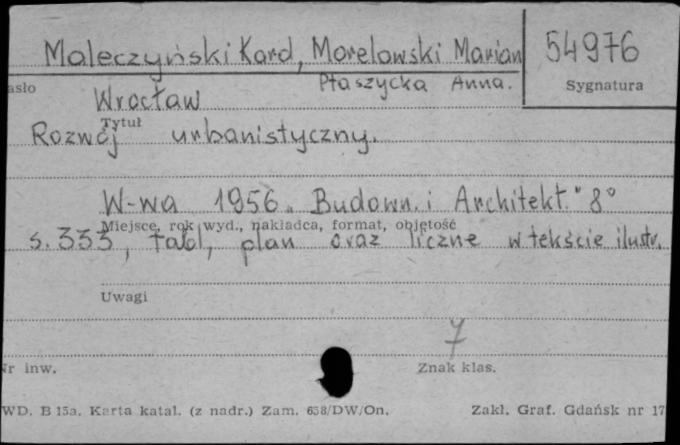 Maleczyński Karol, Morelowski Marian 54976
asło Ptaszycka Anna. Sygnatura
Wrocław
Tytuł
Rozwój urbanistyczny.
W-wa 1956 "Budown. i Architekt." 8°
Miejsce, rok wyd., nakładca, format, objętość
s. 333, tabl, plan oraz liczne w tekście ilustr.
Uwagi
7
Nr inw. Znak klas.
WD. B 15a. Karta katal. (z nadr.) Zam. 658/DW/On. Zakł. Graf. Gdańsk nr 17